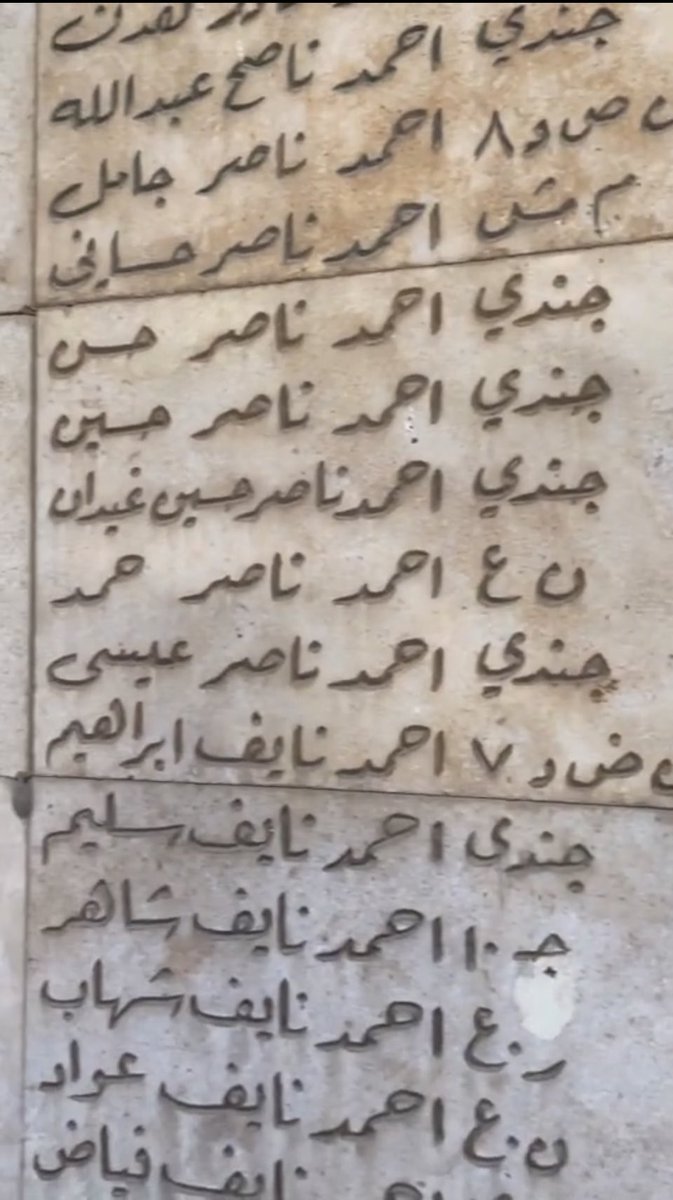 جندي احمد ناصح عبدالله
ن ص و ٨ احمد ناصر جامل
م ش احمد ناصر حساني
جندي احمد ناصر حسن
جندي احمد ناصر حسين
جندي احمد ناصر حسين غيدان
ن ع احمد ناصر حمد
جندي احمد ناصر عيسى
ن ض د ٧ احمد نايف ابراهيم
جندى احمد نايف سليم
جـ ١٠ احمد نايف شاهر
ر.ع احمد نايف شهاب
ن.ع احمد نايف عواد
نايف فياض